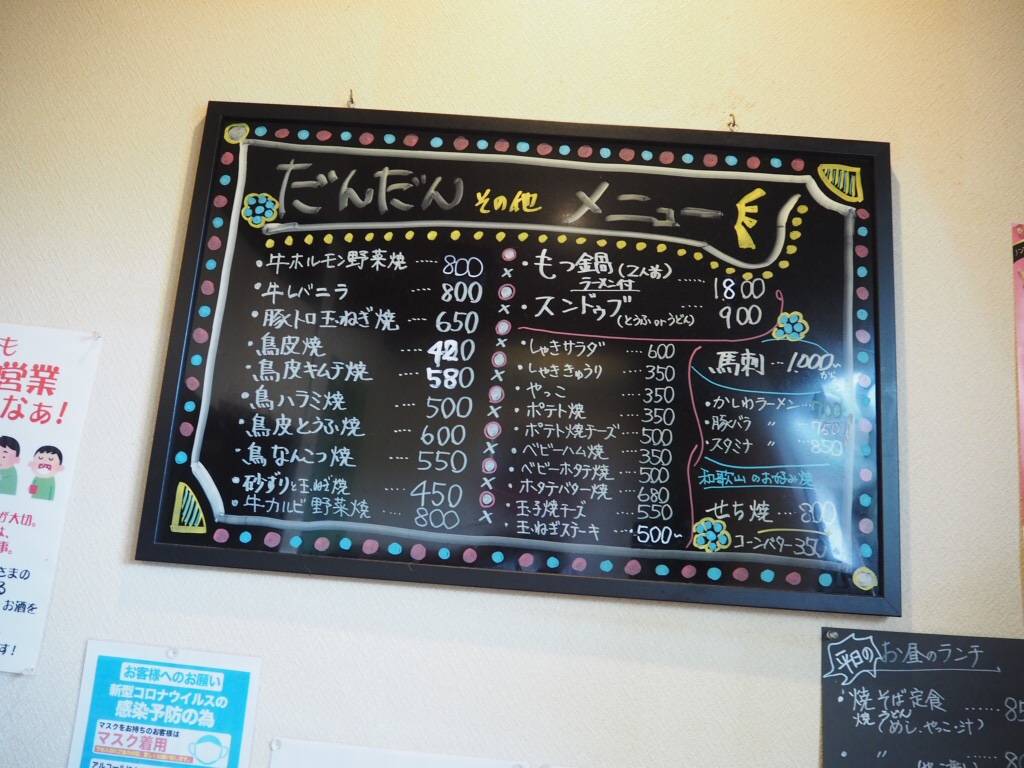 だんだん その他 メニュー
・牛ホルモン野菜焼 ···· 800
・牛レバニラ 800
・豚トロ玉ねぎ焼 650
・鳥皮焼 ···· 420
・鳥皮キムチ焼 ···· 580
・鳥ハラミ焼 ···· 500
・鳥皮とうふ焼 ···· 600
・鳥なんこつ焼 ···· 550
・砂ずりと玉ねぎ焼 ···· 450
・牛カルビ野菜焼 ···· 800
・もつ鍋(2人前) 1800
ラーメン付
・スンドゥブ 900
(とうふorうどん)
・しゃきサラダ ···· 600
・しゃききゅうり 350
・やっこ ···· 350
・ポテト焼 350
・ポテト焼チーズ ···· 500
・ベビーハム焼 ···· 350
・ベビーホタテ焼 ···· 500
・ホタテバター焼 ···· 680
・玉子焼チーズ ···· 550
・玉ねぎステーキ ···· 500~
馬刺 ··· 1000~
から
・かしわラーメン ··· 700
・豚バラ 〃 750
・スタミナ 〃 850
和歌山のお好み焼
せち焼 ··· 800
コーンバター 350
も
営業
なぁ!
が大切。
は、
事。
さまの
る
お酒を
す!
お客様へのお願い
新型コロナウイルスの
感染予防の為
マスクをお持ちのお客様は
マスク着用
平日の お昼のランチ
・焼そば定食 ······ 85
焼うどん
(めし、やっこ、汁)
・ 〃